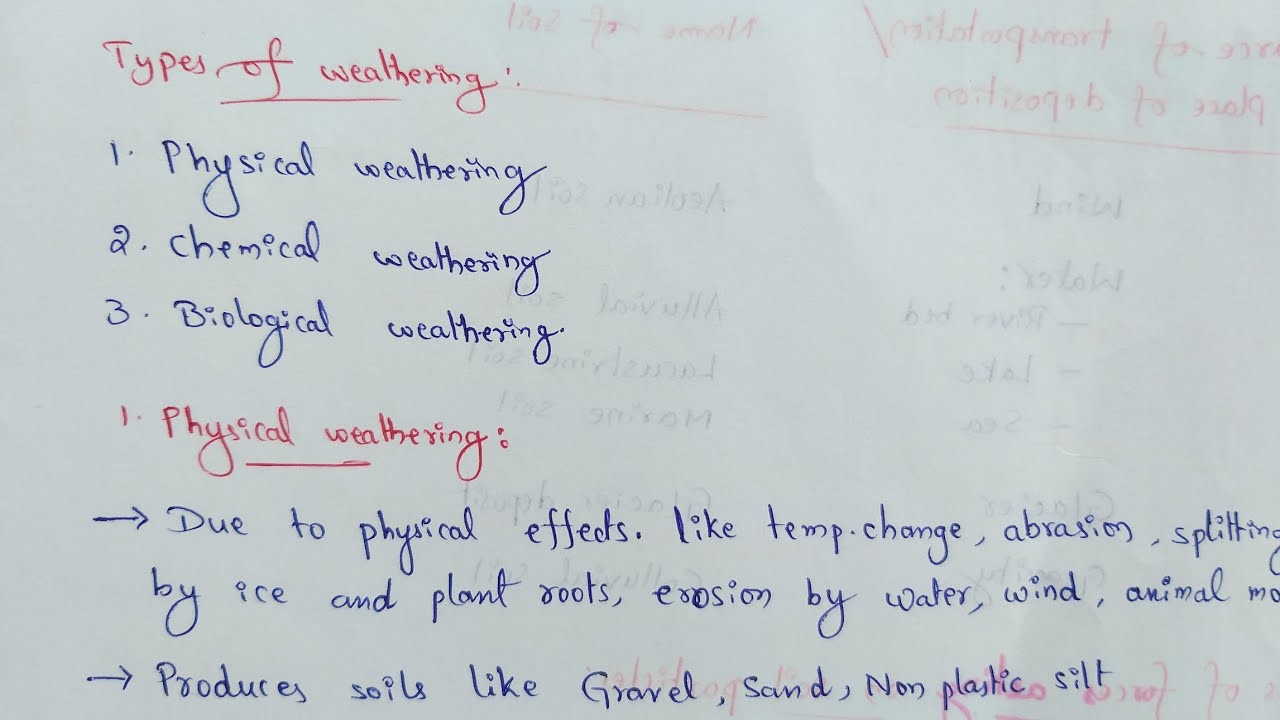 Types of weathering:
1. Physical weathering
2. Chemical weathering
3. Biological weathering.
1. Physical weathering:
→ Due to physical effects. like temp. change, abrasion, splitting
by ice and plant roots, erosion by water, wind, animal mo
→ Produces soils like Gravel, Sand, Non plastic silt